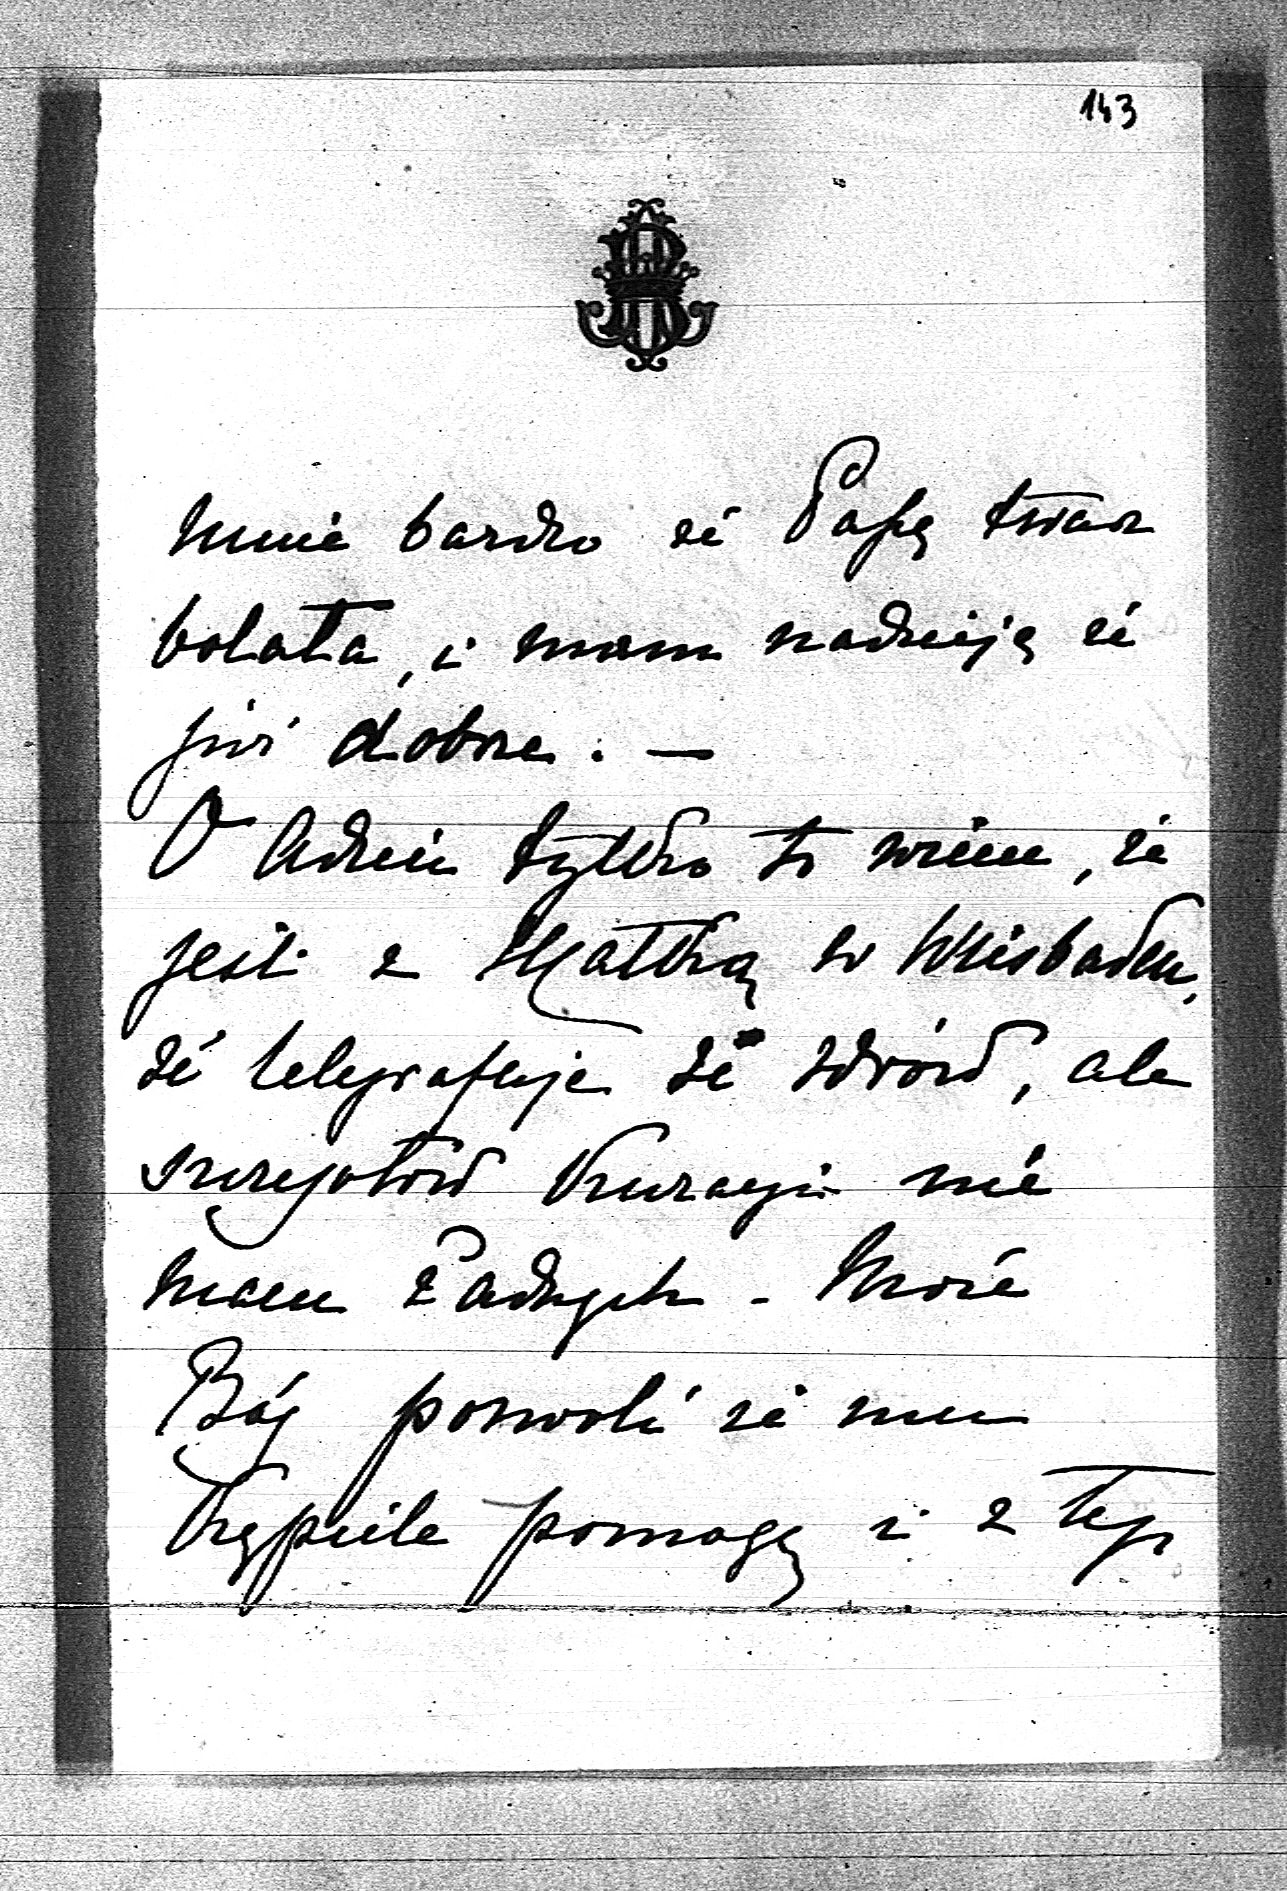 143
mnie bardzo że Papę twarz
bolała, i mam nadzieję że
już dobrze. —
O Adziu tylko to wiem, że
jest z Matką w Wiesbaden,
że telegrafuje że zdrów, ale
szczegółów kuracyi nie
mam żadnych - Może
Bóg pozwoli że mu
kąpiele pomogą i z tej